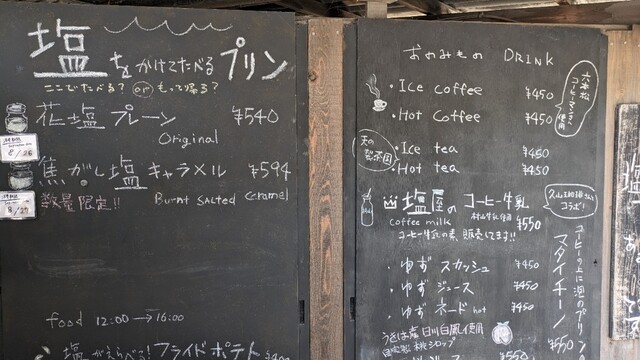 塩をかけてたべるプリン
ここでたべる? or もって帰る?
花塩プレーン ¥540
Original
8/26
焦がし塩キャラメル ¥594
数量限定!! Burnt SALTED Caramel
8/29
food 12:00→16:00
塩がえらべる! フライドポテト
おのみもの DRINK
・Ice coffee ¥450
・Hot Coffee ¥450
使用
・Ice tea ¥450
・Hot tea ¥450
天の製茶園
塩屋のコーヒー牛乳
Coffee milk ¥550
コーヒー牛乳の素、販売してます!!
コラボ!
・ゆず スカッシュ ¥450
・ゆず ジュース ¥450
・ゆず ネード hot ¥450
うきは産 日川白鳳使用
自家製 桃シロップ
コーヒーの上に泡のプリン
マタイチーノ ¥550